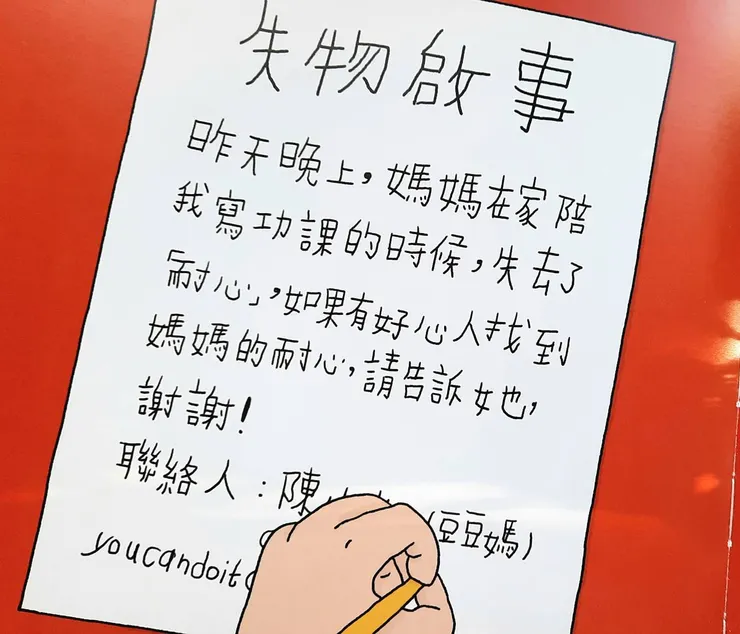 失物啟事
昨天晚上，媽媽在家陪
我寫功課的時候，失去了
「耐心」，如果有好心人找到
媽媽的耐心，請告訴她，
謝謝！
聯絡人：陳 （豆豆媽）
youcandoit